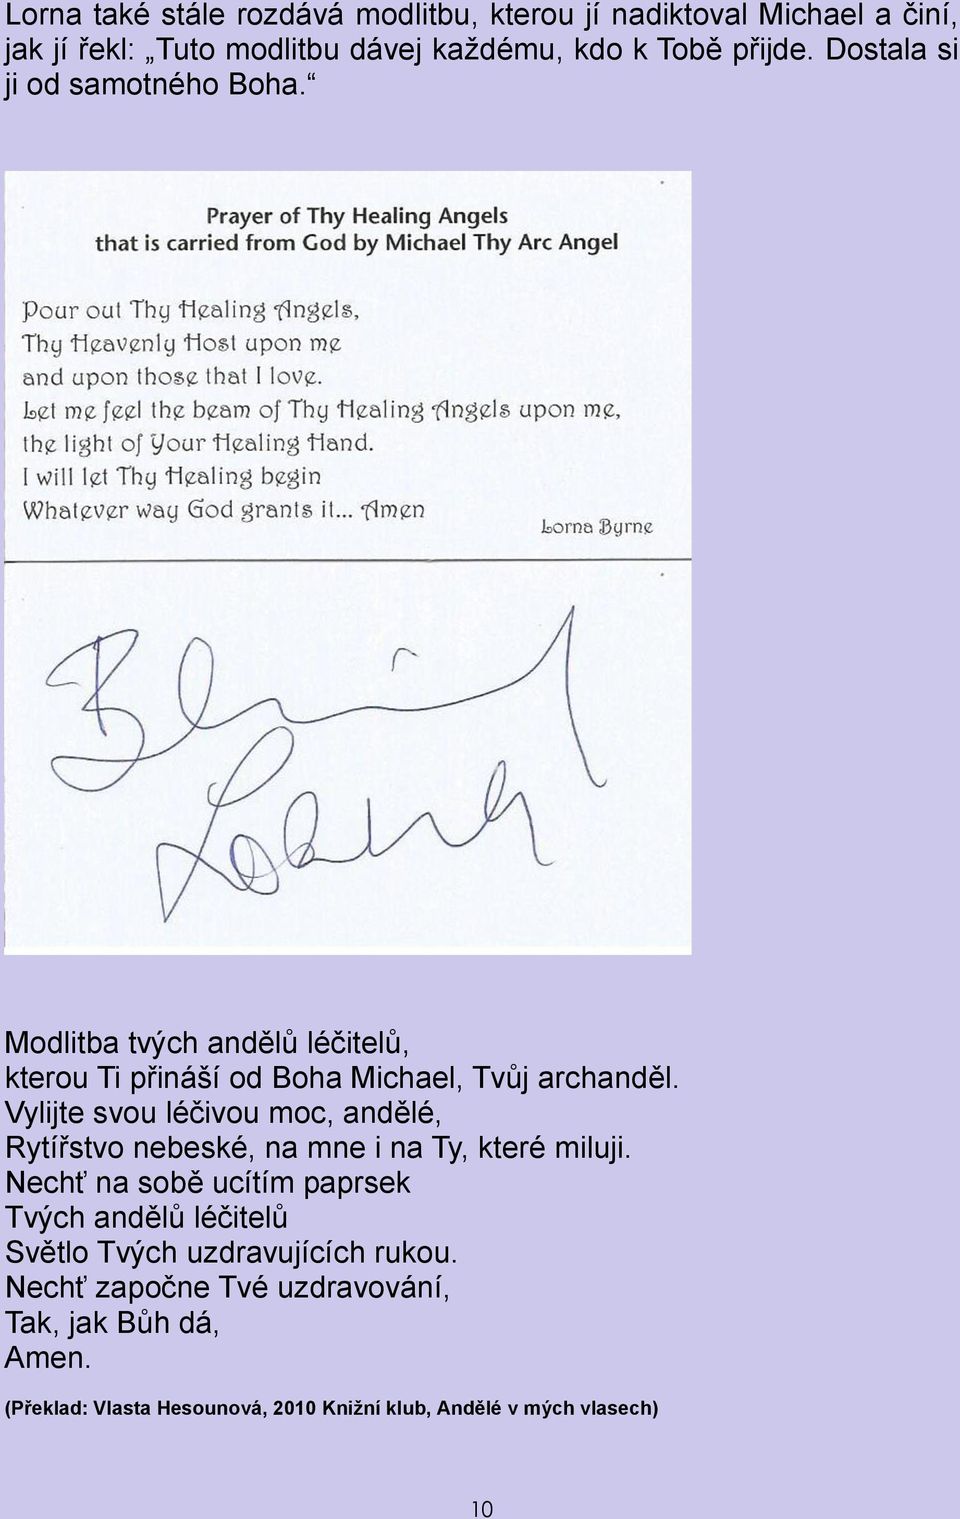 Lorna také stále rozdává modlitbu, kterou jí nadiktoval Michael a činí,
jak jí řekl: „Tuto modlitbu dávej každému, kdo k Tobě přijde. Dostala si
ji od samotného Boha.“
Prayer of Thy Healing Angels
that is carried from God by Michael Thy Arc Angel
Pour out Thy Healing Angels,
Thy Heavenly Host upon me
and upon those that I love.
Let me feel the beam of Thy Healing Angels upon me,
the light of Your Healing Hand.
I will let Thy Healing begin
Whatever way God grants it... Amen
Lorna Byrne
Lorna
Modlitba tvých andělů léčitelů,
kterou Ti přináší od Boha Michael, Tvůj archanděl.
Vylijte svou léčivou moc, andělé,
Rytířstvo nebeské, na mne i na Ty, které miluji.
Nechť na sobě ucítím paprsek
Tvých andělů léčitelů
Světlo Tvých uzdravujících rukou.
Nechť započne Tvé uzdravování,
Tak, jak Bůh dá,
Amen.
(Překlad: Vlasta Hesounová, 2010 Knižní klub, Andělé v mých vlasech)
10